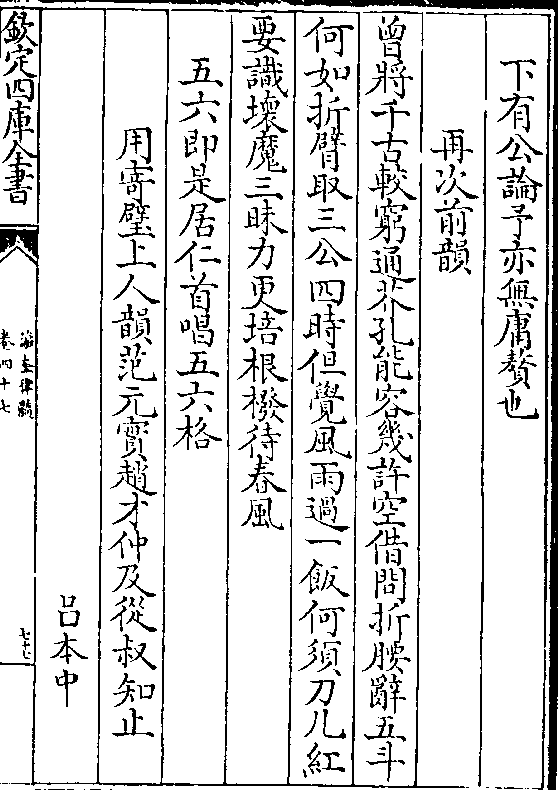 下有公論予亦無庸贅也
再次前韻
曾將千古較窮通芥孔能容幾許空借問折腰辭五斗
何如折臂取三公四時但覺風雨過一飯何須刀几紅
要識壞魔三昧力更培根撥待春風
五六即是居仁首唱五六格
用寄璧上人韻范元實趙才仲及從叔知止
呂本中
欽定四庫全書
瀛奎律髓
卷四十七
七十七